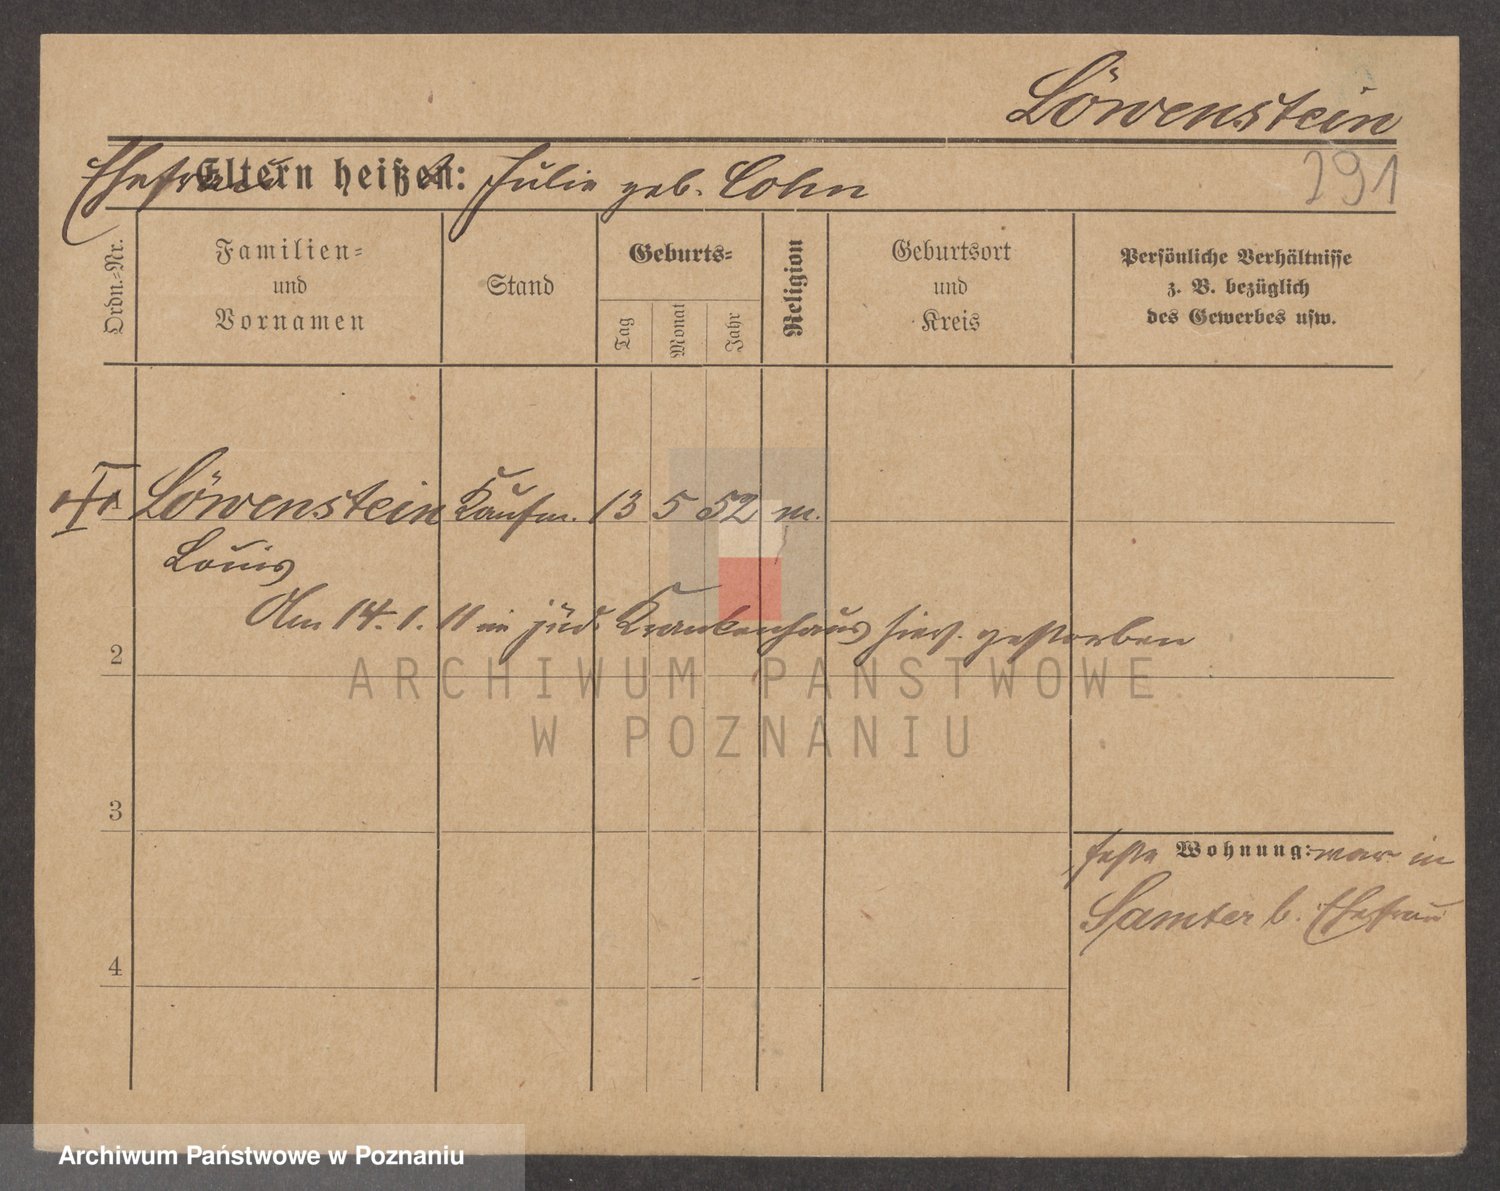 Löwenstein
291
Ehefrau Eltern heißen: Julie geb. Cohn
Ordn.-Nr.
Familien-
und
Vornamen
Stand
Geburts-
Tag
Monat
Jahr
Religion
Geburtsort
und
Kreis
Persönliche Verhältnisse
z. B. bezüglich
des Gewerbes usw.
Löwenstein Kaufm. 13 5 52 m.
Louis
Am 14. 1. 11 im jüd. Krankenhaus hier gestorben
2
ARCHIWUM PAŃSTWOWE
W POZNANIU
3
feste Wohnung: war in
Samter b. Ehefrau
4
Archiwum Państwowe w Poznaniu